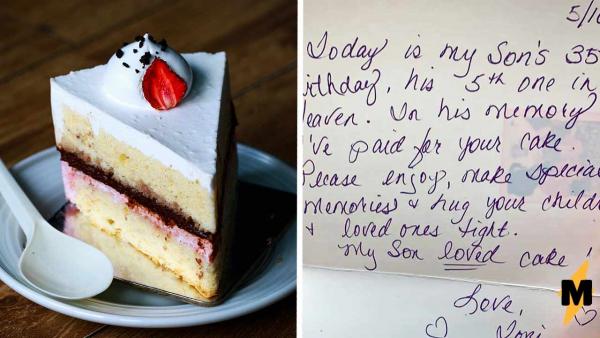 5/1
Today is my Son's 35
irthday, his 5th one in
eaven. In his memory
I've paid for your cake.
Please enjoy, make special
memories & hug your childr
& loved ones tight.
My Son loved cake!
Love,
M